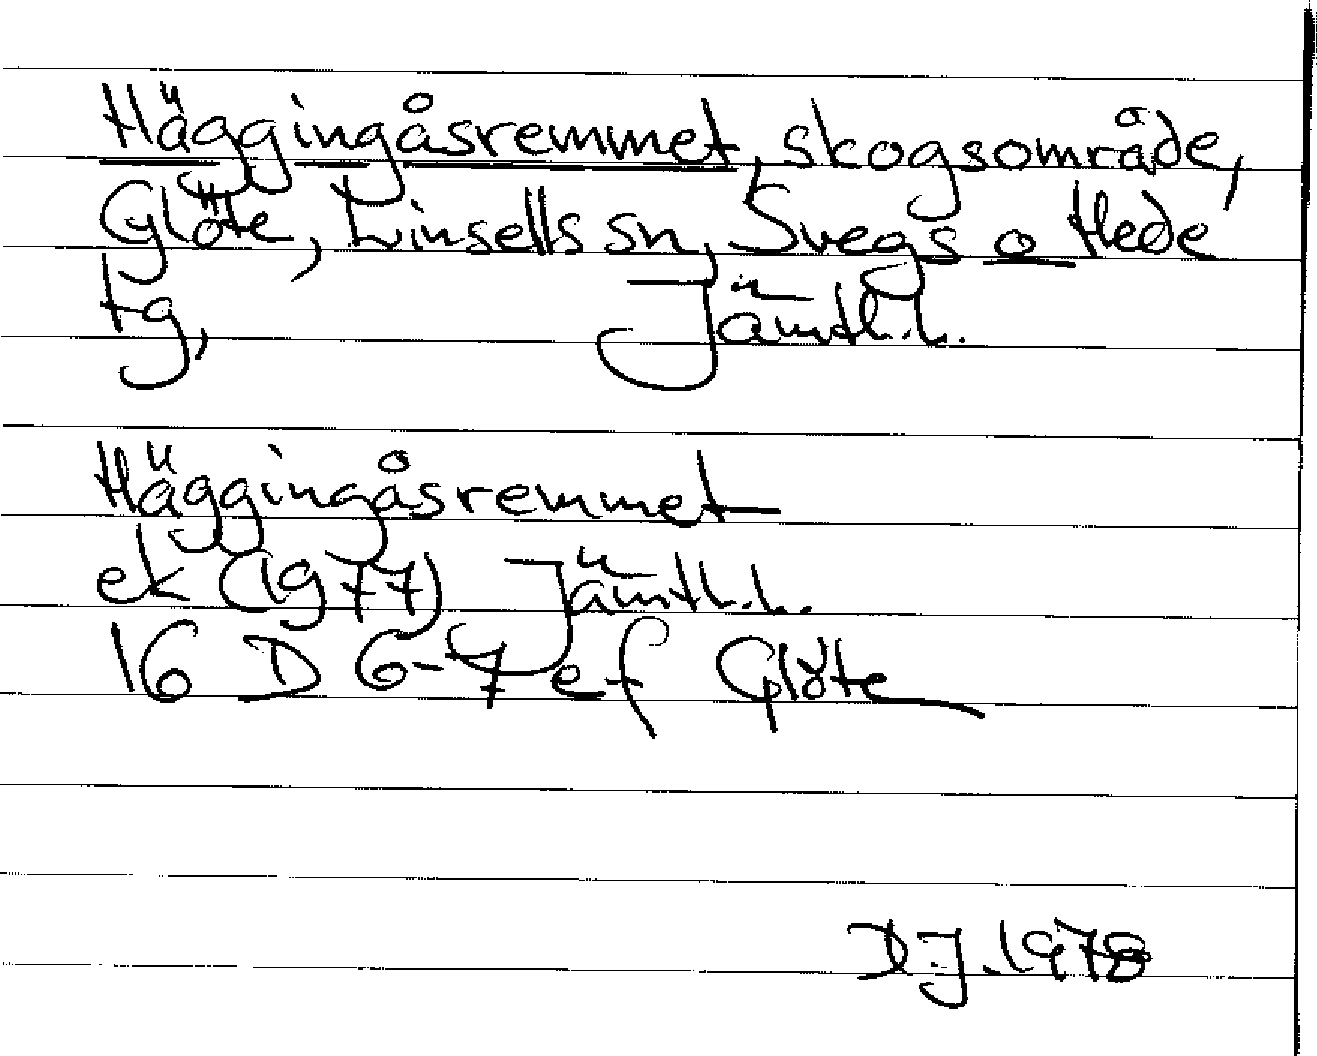 Häggingåsremmet, skogsområde,
Glöte, Linsells sn, Svegs o Hede
tg, Jämtl.l.
Häggingåsremmet
ek (1977) Jämtl.l.
16 D 6-7 ef Glöte
D.J. 1978